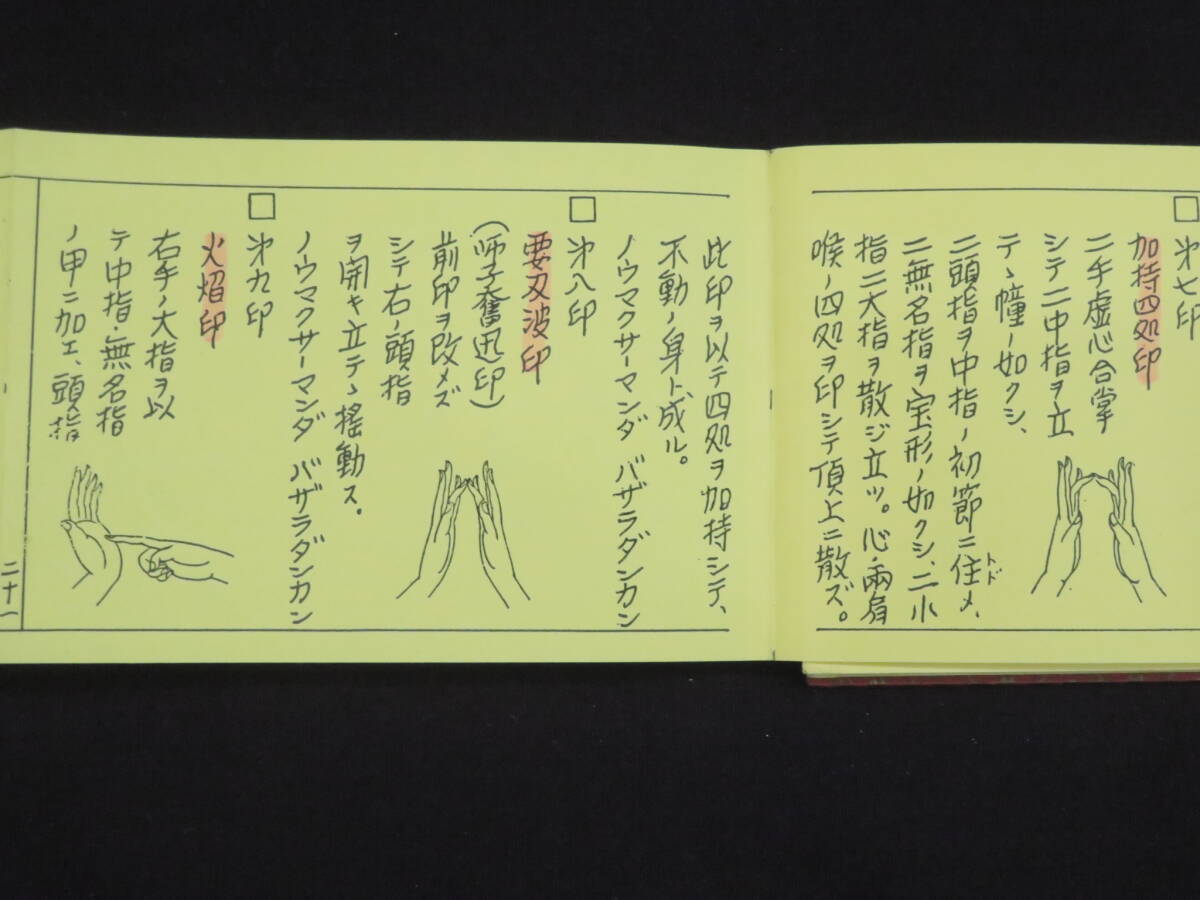 □ 㐧七印
加持四処印
二手虚心合掌
シテ二中指ヲ立
テヽ幢ノ如クシ、
二頭指ヲ中指ノ初節ニ住メ、
トド
二無名指ヲ宝形ノ如クシ、二小
指二大指ヲ散ジ立ツ。心・両肩
喉ノ四処ヲ印シテ頂上ニ散ズ。
此印ヲ以テ四処ヲ加持シテ、
不動ノ身ト成ル。
ノウマクサーマンダ バザラダンカン
□ 㐧八印
要刄波印
(師子奮迅印)
前印ヲ改メズ
シテ右ノ頭指
ヲ開キ立テヽ搖動ス。
ノウマクサーマンダ バザラダンカン
□ 㐧九印
火焰印
右手ノ大指ヲ以
テ中指・無名指
ノ甲ニ加エ、頭指
二十一